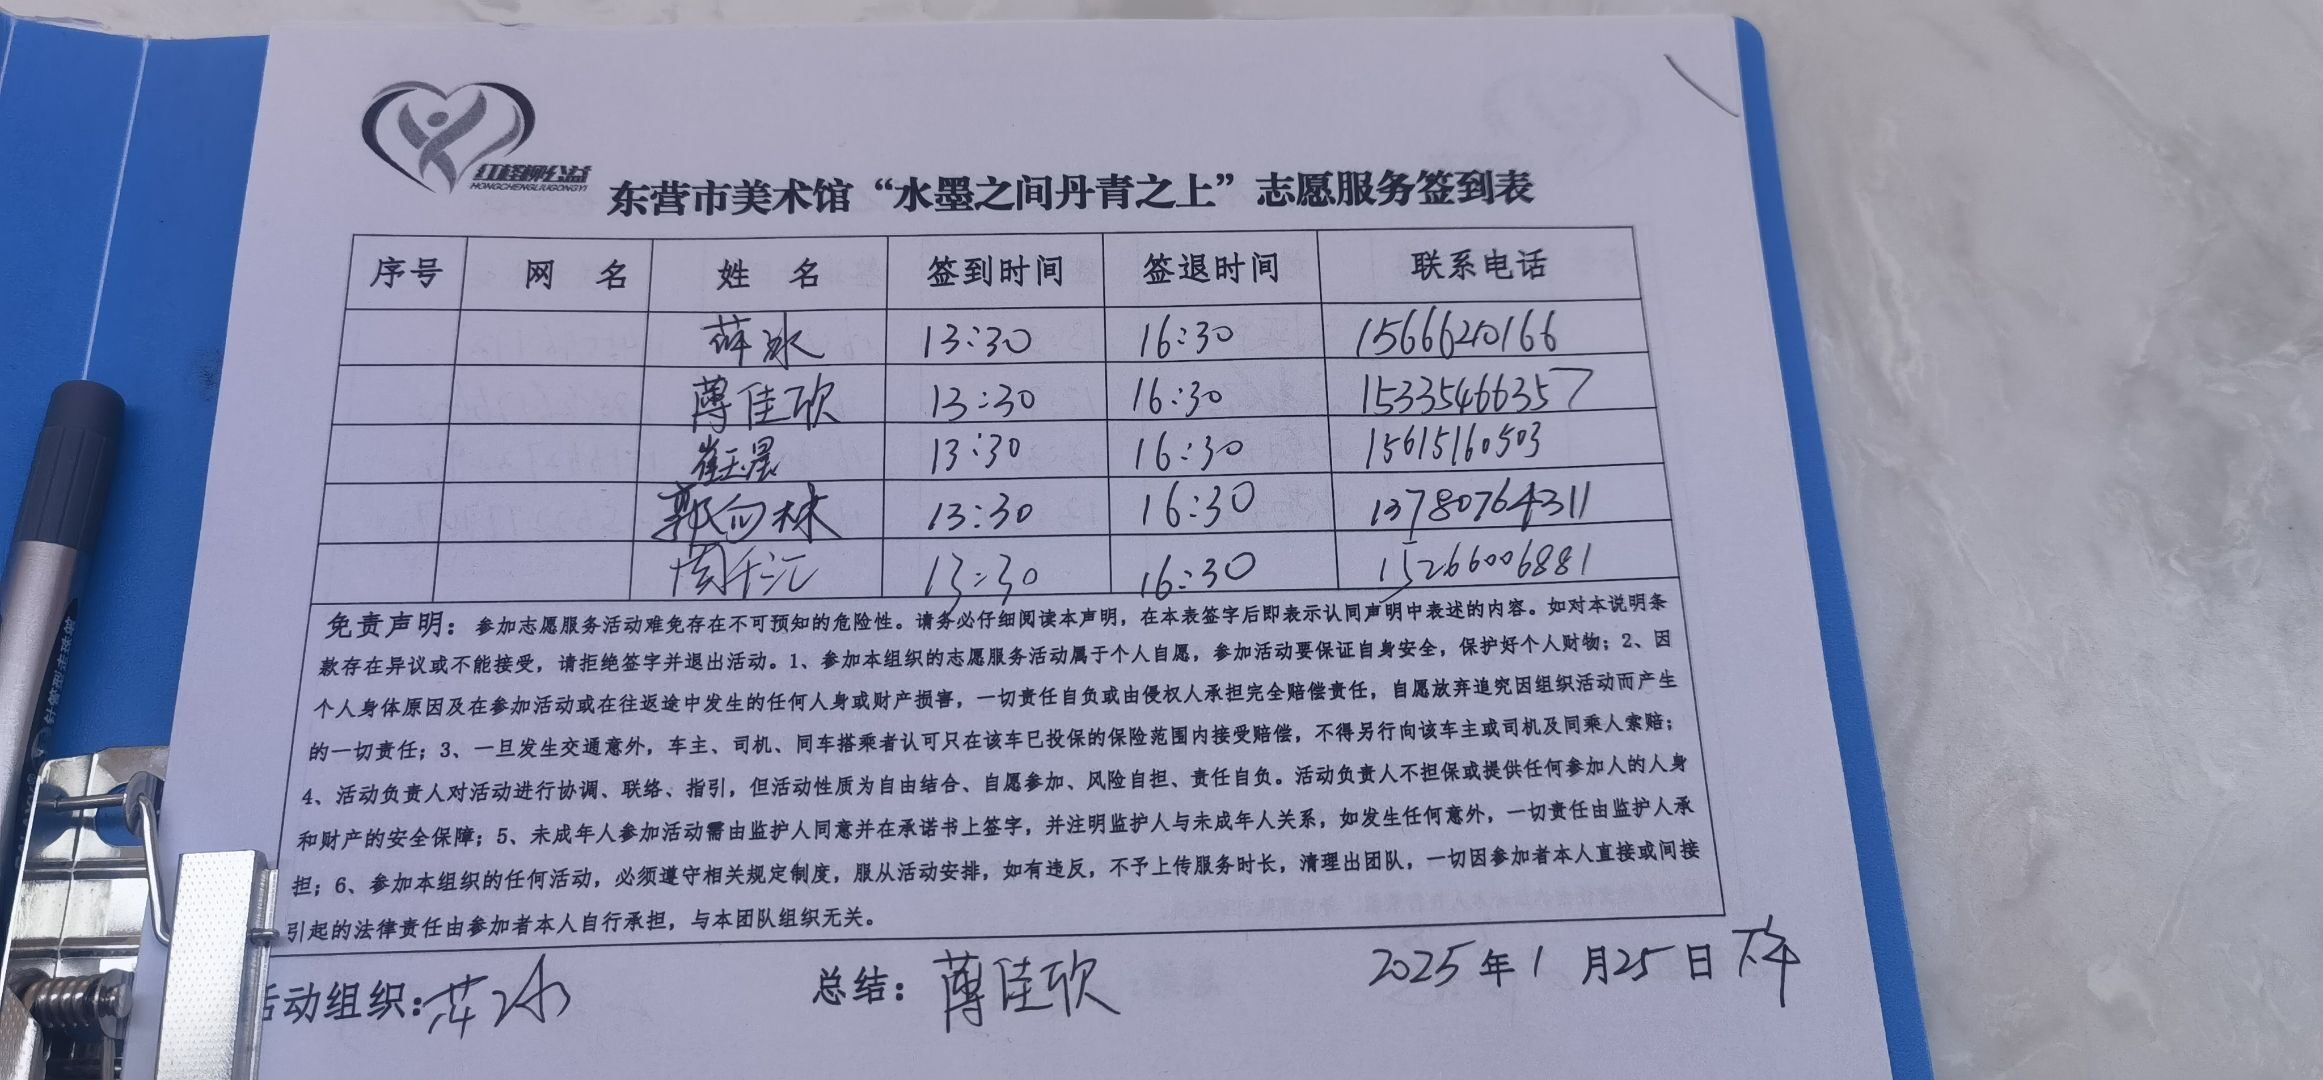 红柽柳公益
HONGCHENGLIUGONGYI
东营市美术馆“水墨之间丹青之上”志愿服务签到表
序号 网 名 姓 名 签到时间 签退时间 联系电话
薛冰 13:30 16:30 15666210166
薄佳欣 13:30 16:30 15335466357
崔玉晨 13:30 16:30 15615160503
郭向林 13:30 16:30 13780764311
13:30 16:30 15266006881
免责声明：参加志愿服务活动难免存在不可预知的危险性。请务必仔细阅读本声明，在本表签字后即表示认同声明中表述的内容。如对本说明条
款存在异议或不能接受，请拒绝签字并退出活动。1、参加本组织的志愿服务活动属于个人自愿，参加活动要保证自身安全，保护好个人财物；2、因
个人身体原因及在参加活动或在往返途中发生的任何人身或财产损害，一切责任自负或由侵权人承担完全赔偿责任，自愿放弃追究因组织活动而产生
的一切责任；3、一旦发生交通意外，车主、司机、同车搭乘者认可只在该车已投保的保险范围内接受赔偿，不得另行向该车主或司机及同乘人索赔；
4、活动负责人对活动进行协调、联络、指引，但活动性质为自由结合、自愿参加、风险自担、责任自负。活动负责人不担保或提供任何参加人的人身
和财产的安全保障；5、未成年人参加活动需由监护人同意并在承诺书上签字，并注明监护人与未成年人关系，如发生任何意外，一切责任由监护人承
担；6、参加本组织的任何活动，必须遵守相关规定制度，服从活动安排，如有违反，不予上传服务时长，清理出团队，一切因参加者本人直接或间接
引起的法律责任由参加者本人自行承担，与本团队组织无关。
活动组织：薛冰 总结：薄佳欣 2025年1月25日下午